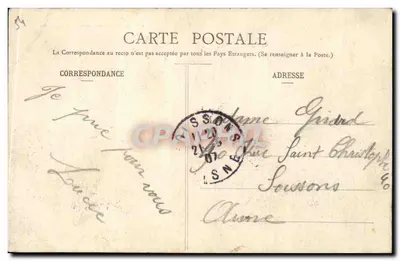 54
CARTE POSTALE
La Correspondance au recto n'est pas acceptée par tous les Pays Étrangers. (Se renseigner à la Poste.)
CORRESPONDANCE
ADRESSE
Je prie pour vous
Lucie
Madame Girard
Rue Saint Christophe 40
Soissons
Aisne
SOISSONS
21
07
AISNE